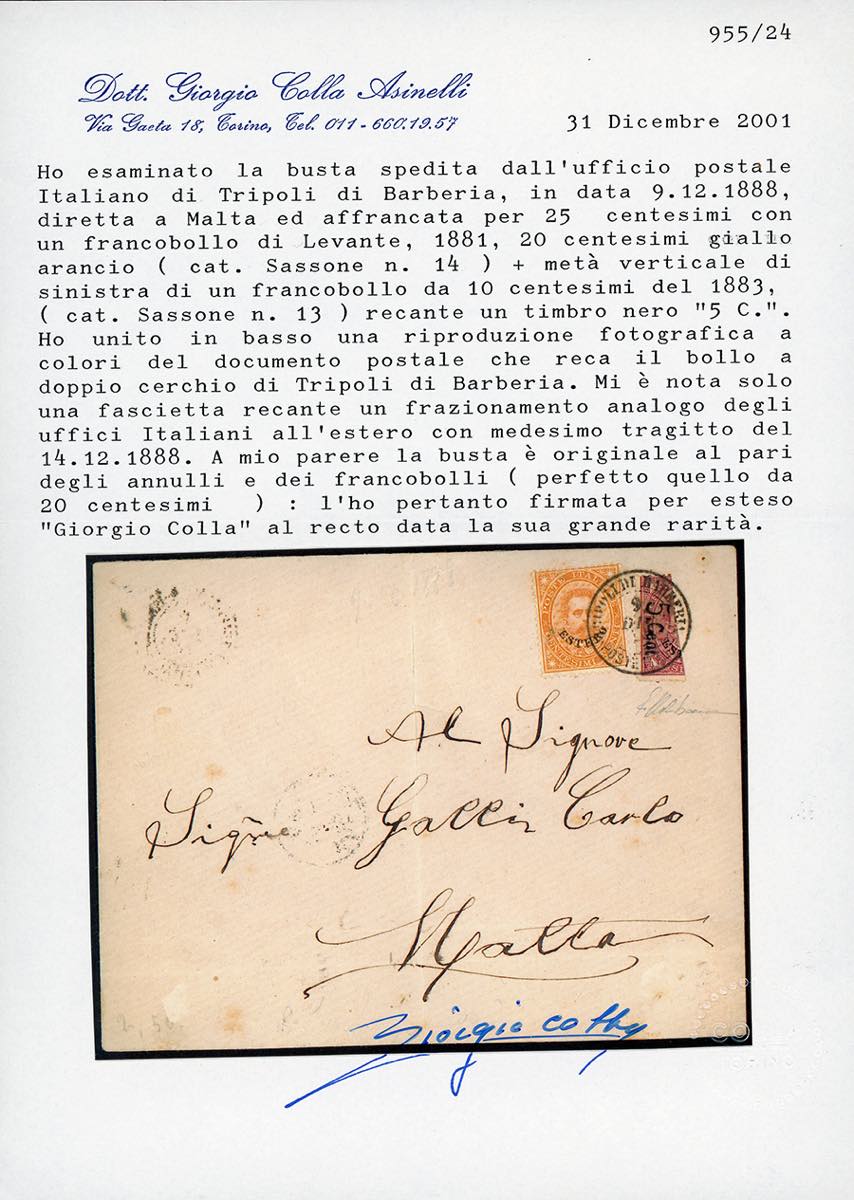 955/24
Dott. Giorgio Colla Asinelli
Via Gaeta 18, Torino, Tel. 011-660.19.57
31 Dicembre 2001
Ho esaminato la busta spedita dall'ufficio postale
Italiano di Tripoli di Barberia, in data 9.12.1888,
diretta a Malta ed affrancata per 25 centesimi con
un francobollo di Levante, 1881, 20 centesimi giallo
arancio ( cat. Sassone n. 14 ) + metà verticale di
sinistra di un francobollo da 10 centesimi del 1883,
( cat. Sassone n. 13 ) recante un timbro nero "5 C.".
Ho unito in basso una riproduzione fotografica a
colori del documento postale che reca il bollo a
doppio cerchio di Tripoli di Barberia. Mi è nota solo
una fascietta recante un frazionamento analogo degli
uffici Italiani all'estero con medesimo tragitto del
14.12.1888. A mio parere la busta è originale al pari
degli annulli e dei francobolli ( perfetto quello da
20 centesimi ) : l'ho pertanto firmata per esteso
"Giorgio Colla" al recto data la sua grande rarità.
POSTE ITAL
ESTERO
CENTESIMI
TRIPOLI DI BARBERIA
POSTE
5 C.
EST
Al Signore
Sigre Gallia Carlo
Malta
Giorgio Colla